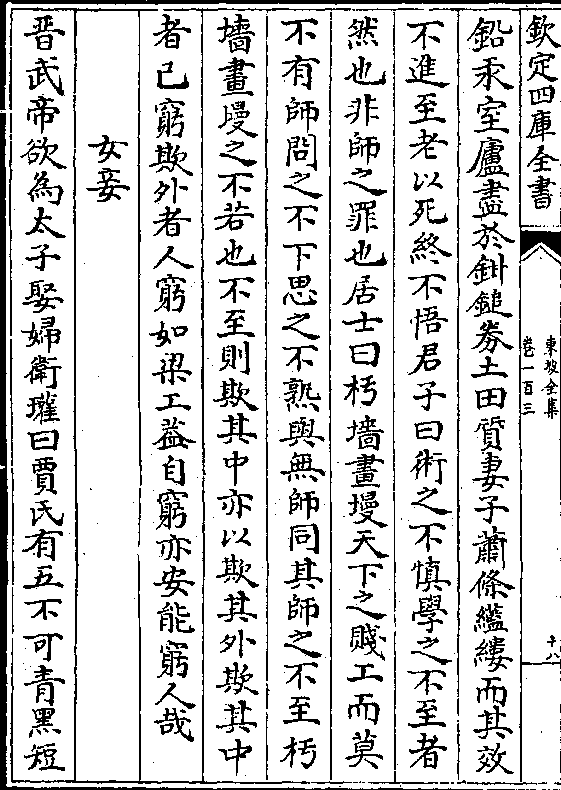 欽定四庫全書
東坡全集
卷一百三
十八
鉛汞室廬盡於鉗鎚劵土田質妻子蕭條繿縷而其效
不進至老以死終不悟君子曰術之不慎學之不至者
然也非師之罪也居士曰朽墻畫墁天下之賤工而莫
不有師問之不下思之不熟與無師同其師之不至朽
墻畫墁之不若也不至則欺其中亦以欺其外欺其中
者己窮欺外者人窮如梁工葢自窮亦安能窮人哉
女妾
晋武帝欲為太子娶婦衛瓘曰賈氏有五不可青黑短